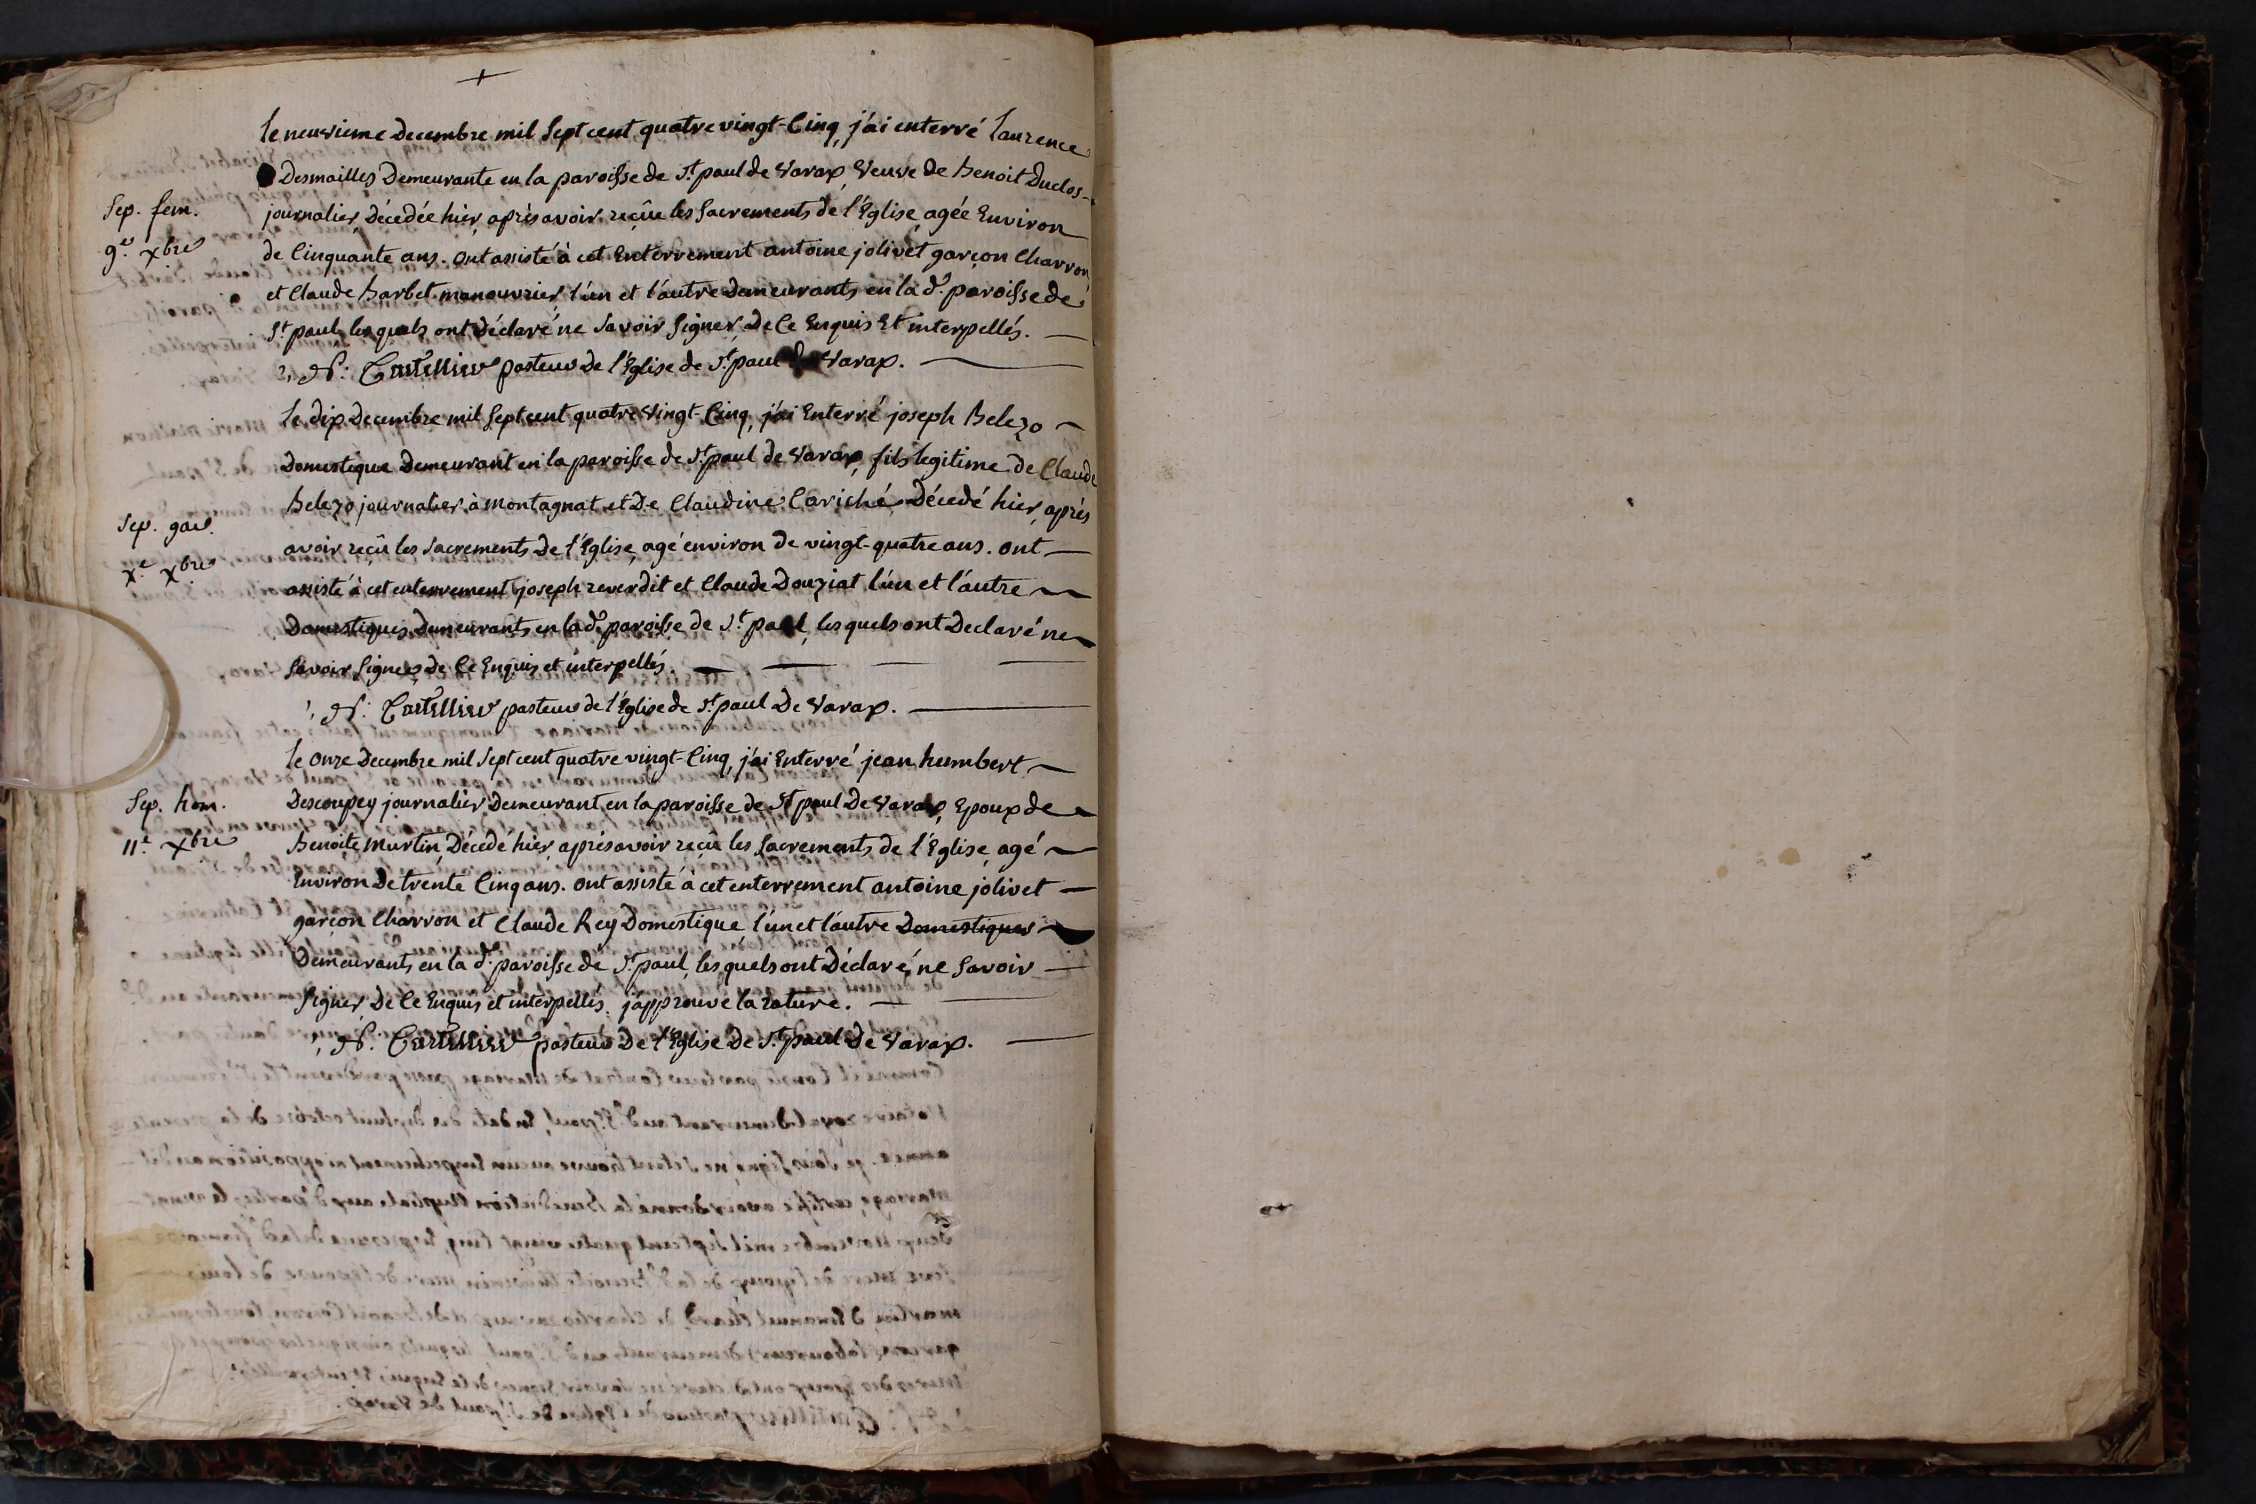 le neuvieme Decembre mil Sept cent quatre vingt-Cinq, j'ai enterré Laurence
Desmailles Demeurante en la paroisse de St. paul de Varax, Veuve de Benoit Duclos
Sep. fem.
journalier, Décedée hier, après avoir reçûe les Sacrements de l'Eglise, agée Environ
9e. Xbre
de Cinquante ans. ont assisté à cet Enterrement antoine jolivet garçon Charron
et Claude Barbet manouvrier, l'un et l'autre Demeurants en la de. paroisse de
St. paul, les quels ont Déclaré ne Savoir Signer, De Ce Enquis Et interpellés.
pasteur De l'Eglise de St. paul de Varax.
le dix Decembre mil Sept cent quatre Vingt-Cinq, j'ai Enterré joseph Belezo
Domestique Demeurant en la paroisse de St. paul de Varax, fils legitime de Claude
Belezo journalier à Montagnat et De Claudine Cariché Décedé hier, après
Sep. gar.
avoir reçû les Sacrements De l'Eglise, agé environ de vingt-quatre ans. ont
Xe. Xbre
assisté à cet enterrement joseph reverdit et Claude Douziat l'un et l'autre
Domestiques, Demeurants en la de. paroisse de St. paul, les quels ont Declaré ne
Savoir Signer, de Ce Enquis et interpellés.
pasteur de l'Eglise de St. paul De Varax.
le Onze Decembre mil Sept cent quatre vingt-Cinq, j'ai Enterré jean humbert
Sep. hom.
Descoupey journalier, Demeurant en la paroisse de St. paul De Varax, Epoux de
11e. Xbre
Benoite Martin, Décedé hier, après avoir reçû les Sacrements de l'Eglise, agé
Environ De trente Cinq ans. ont assisté à cet enterrement antoine jolivet
garçon Charron et Claude Rey Domestique, l'un et l'autre Domestiques
Demeurants en la de. paroisse de St. paul, les quels ont Déclaré, ne Savoir
Signer, De Ce Enquis et interpellés. j'approuve la rature.
pasteur De l'Eglise De St. paul De Varax.